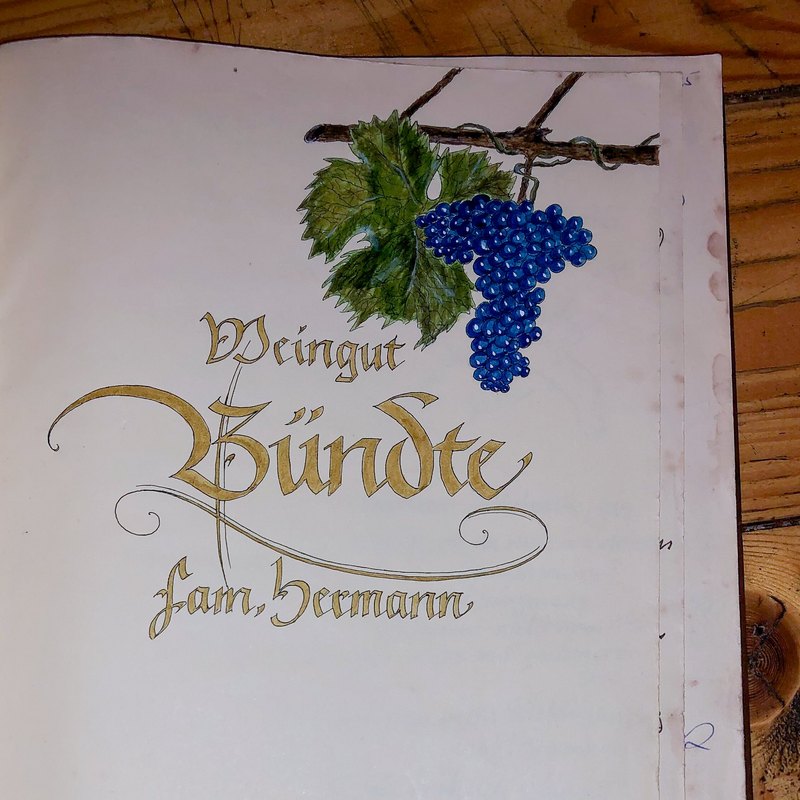 Weingut
Bündte
Fam. Hermann